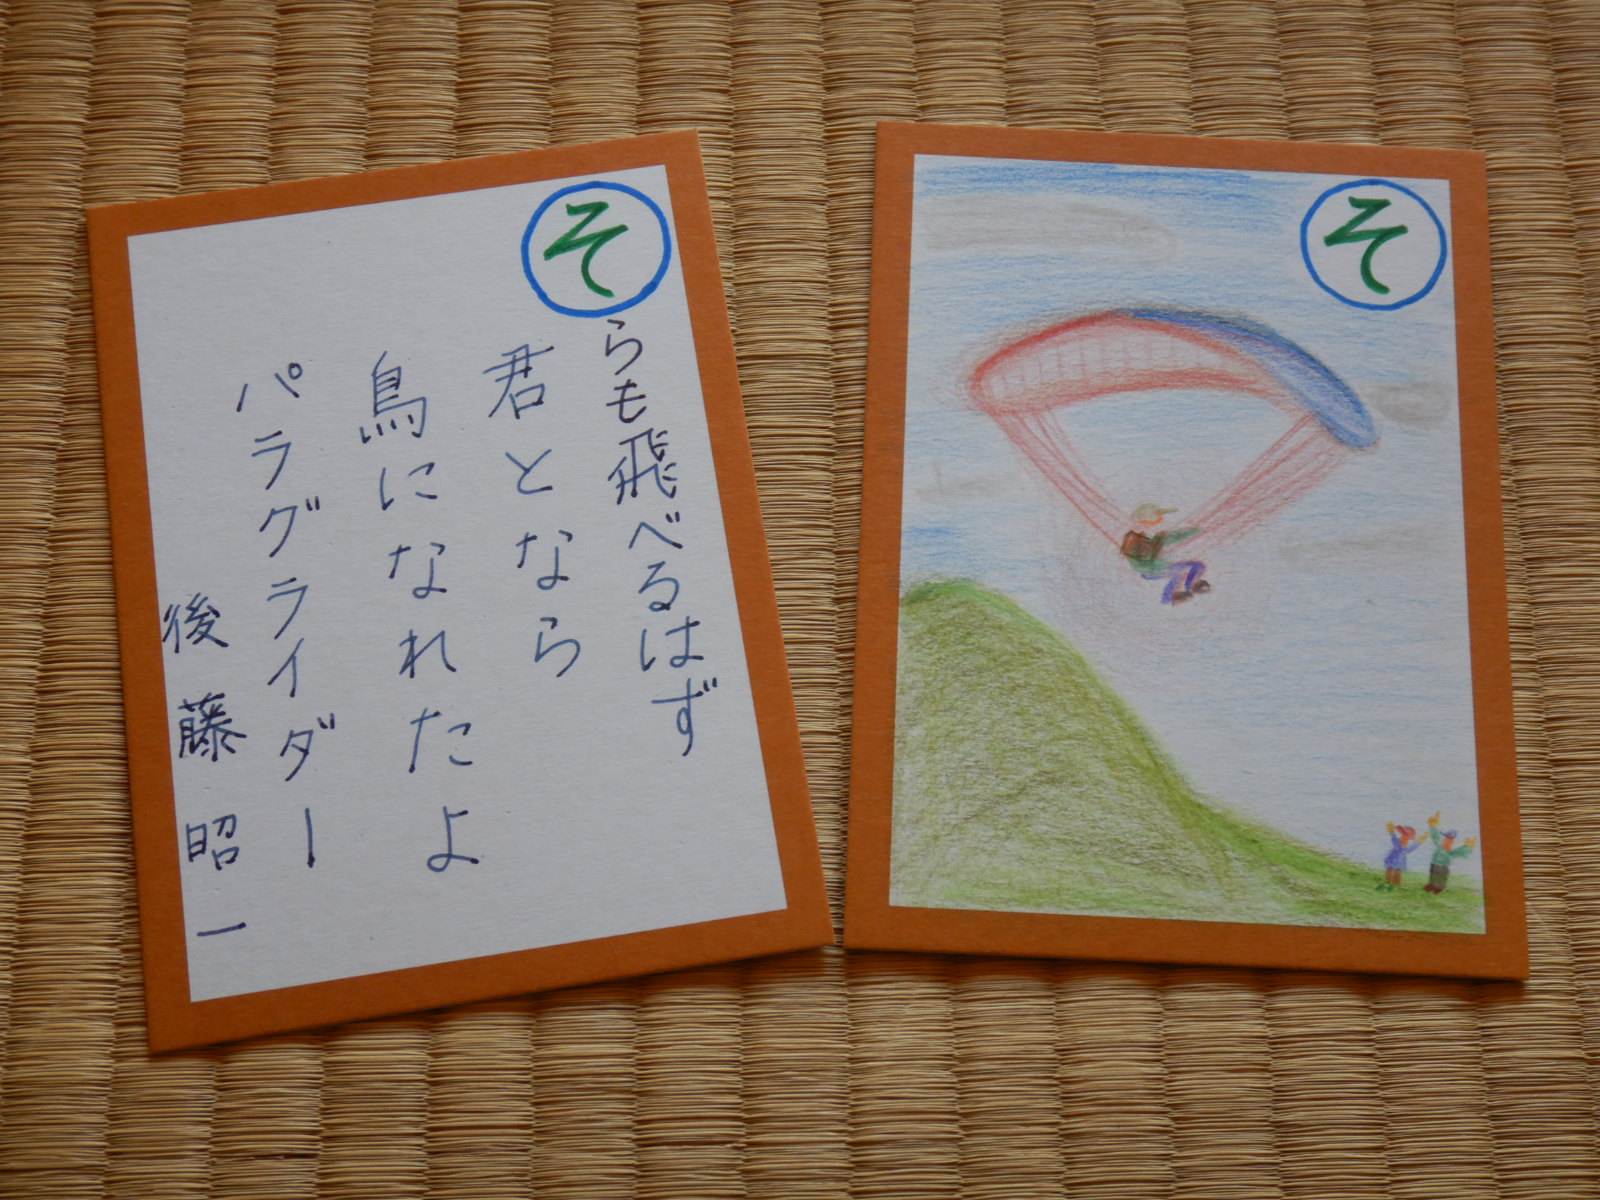 そらも飛べるはず
君となら
鳥になれたよ
パラグライダー
後藤昭一
そ